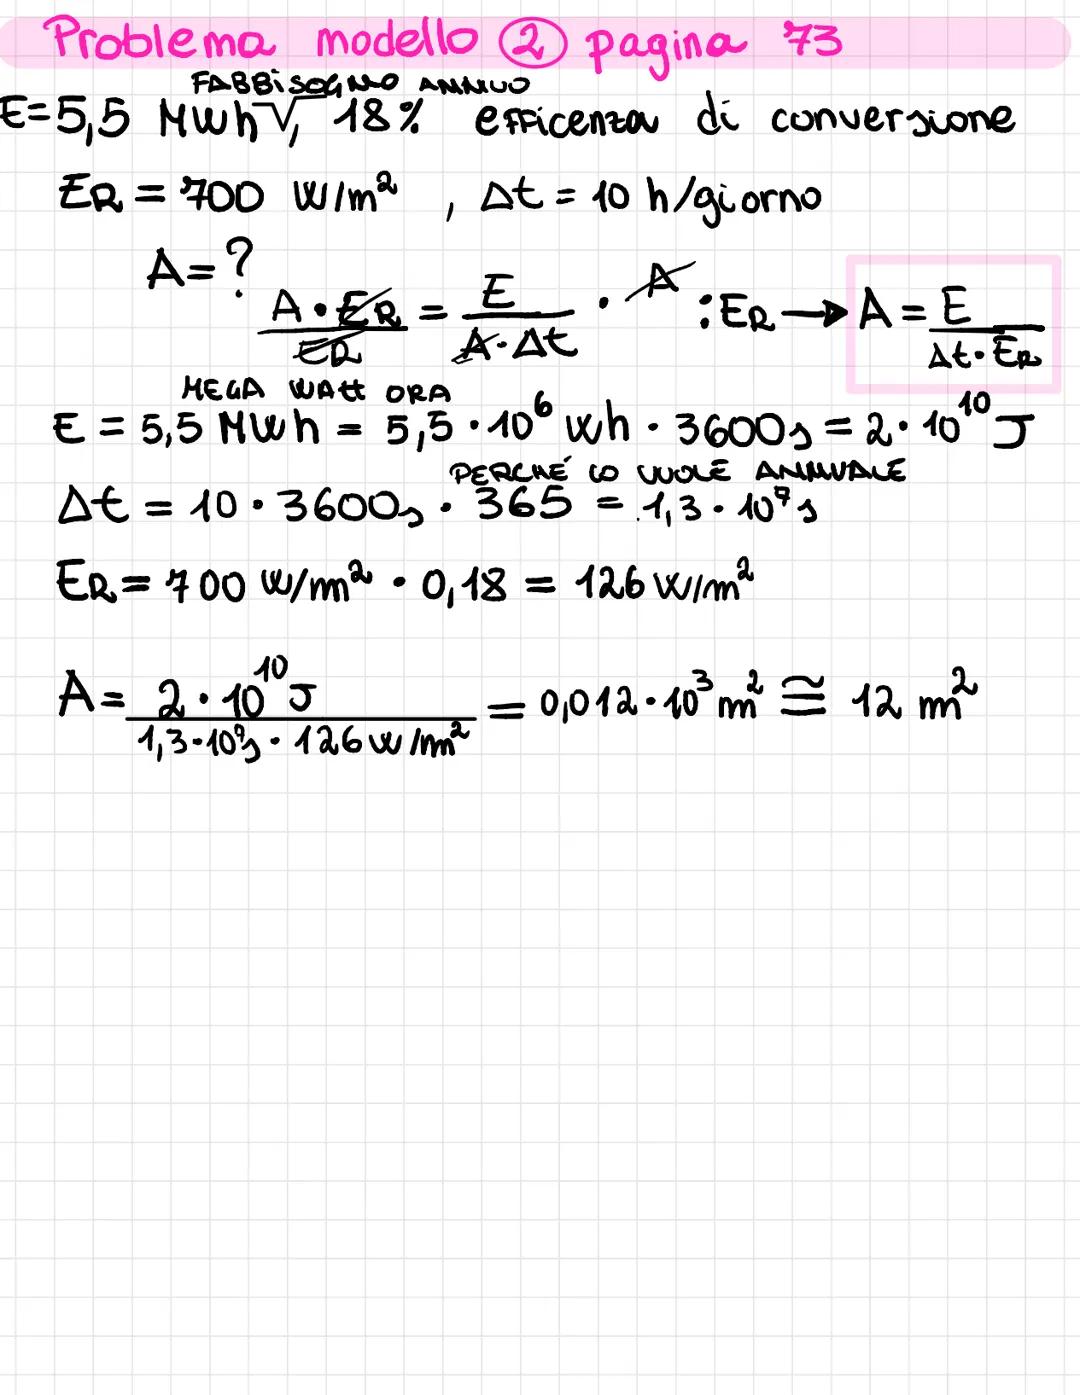 Problema modello ② pagina 73
FABBISOGNO ANNUO
E=5,5 MWh √, 18% efficenza di conversione
ER = 700 W/m² , Δt = 10 h/giorno
A=?
A·ER/ER = E/A·Δt · A :ER → A = E/Δt·ER
MEGA WATT ORA
E = 5,5 MWh = 5,5·10⁶ Wh · 3600s = 2·10¹⁰ J
PERCHÉ LO VUOLE ANNUALE
Δt = 10·3600s · 365 = 1,3·10⁷s
ER = 700 W/m² · 0,18 = 126 W/m²
A = 2·10¹⁰J / 1,3·10⁷s · 126 W/m² = 0,012·10³ m² ≅ 12 m²